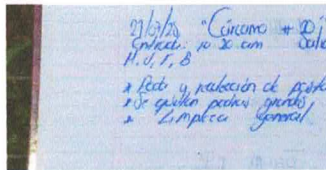 21/03/23 "Cárcamo # 20"
Entrada: 10 20 am Sali
H, J, F, B
* Poda y recolección de pasto
* Se quitan piedras grandes
* Limpieza general